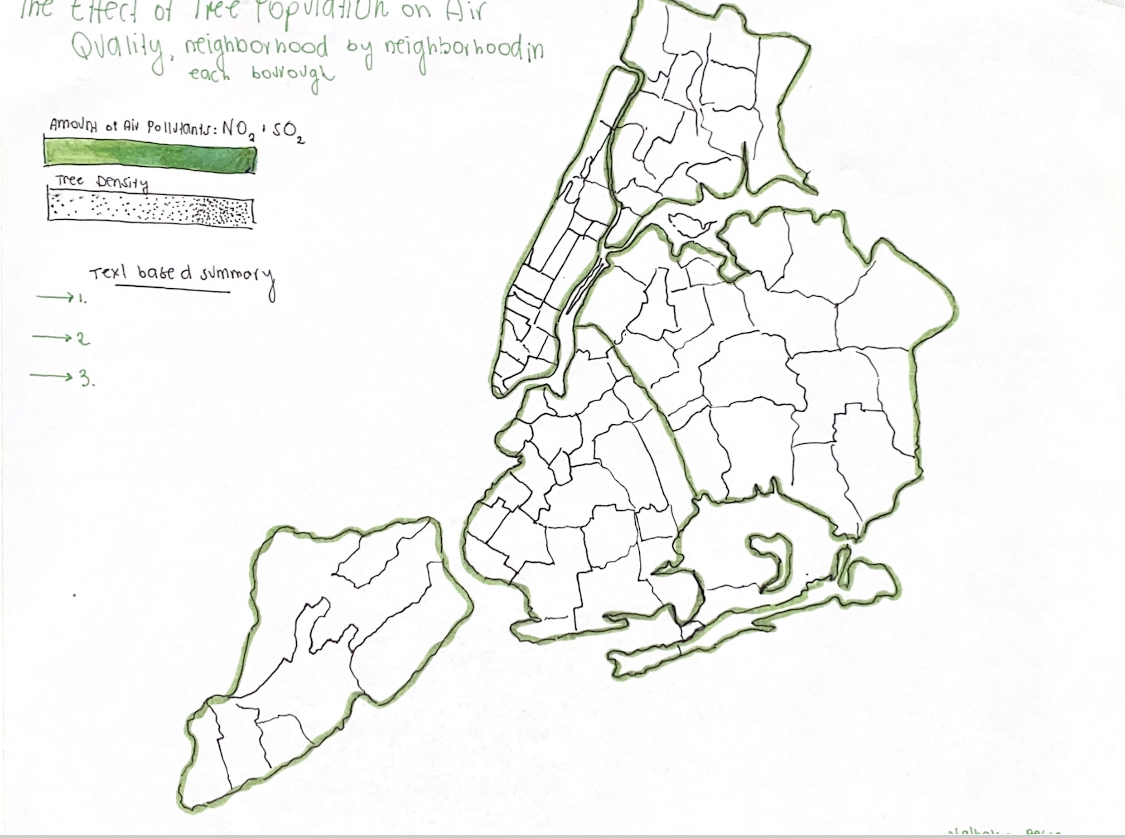 The Effect of Tree Population on Air
Quality, neighborhood by neighborhood in
each borough
Amount of Air Pollutants: NO₂, SO₂
Tree Density
Text based summary
→ 1.
→ 2
→ 3.